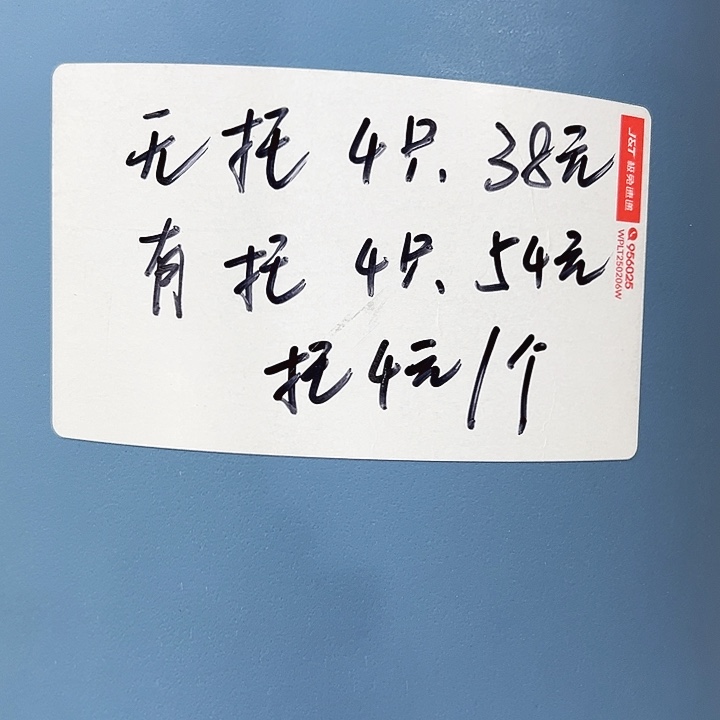 无托 4只. 38元
有托 4只. 54元
托4元/个
J&T 极兔速递
956025
WPLT250206W